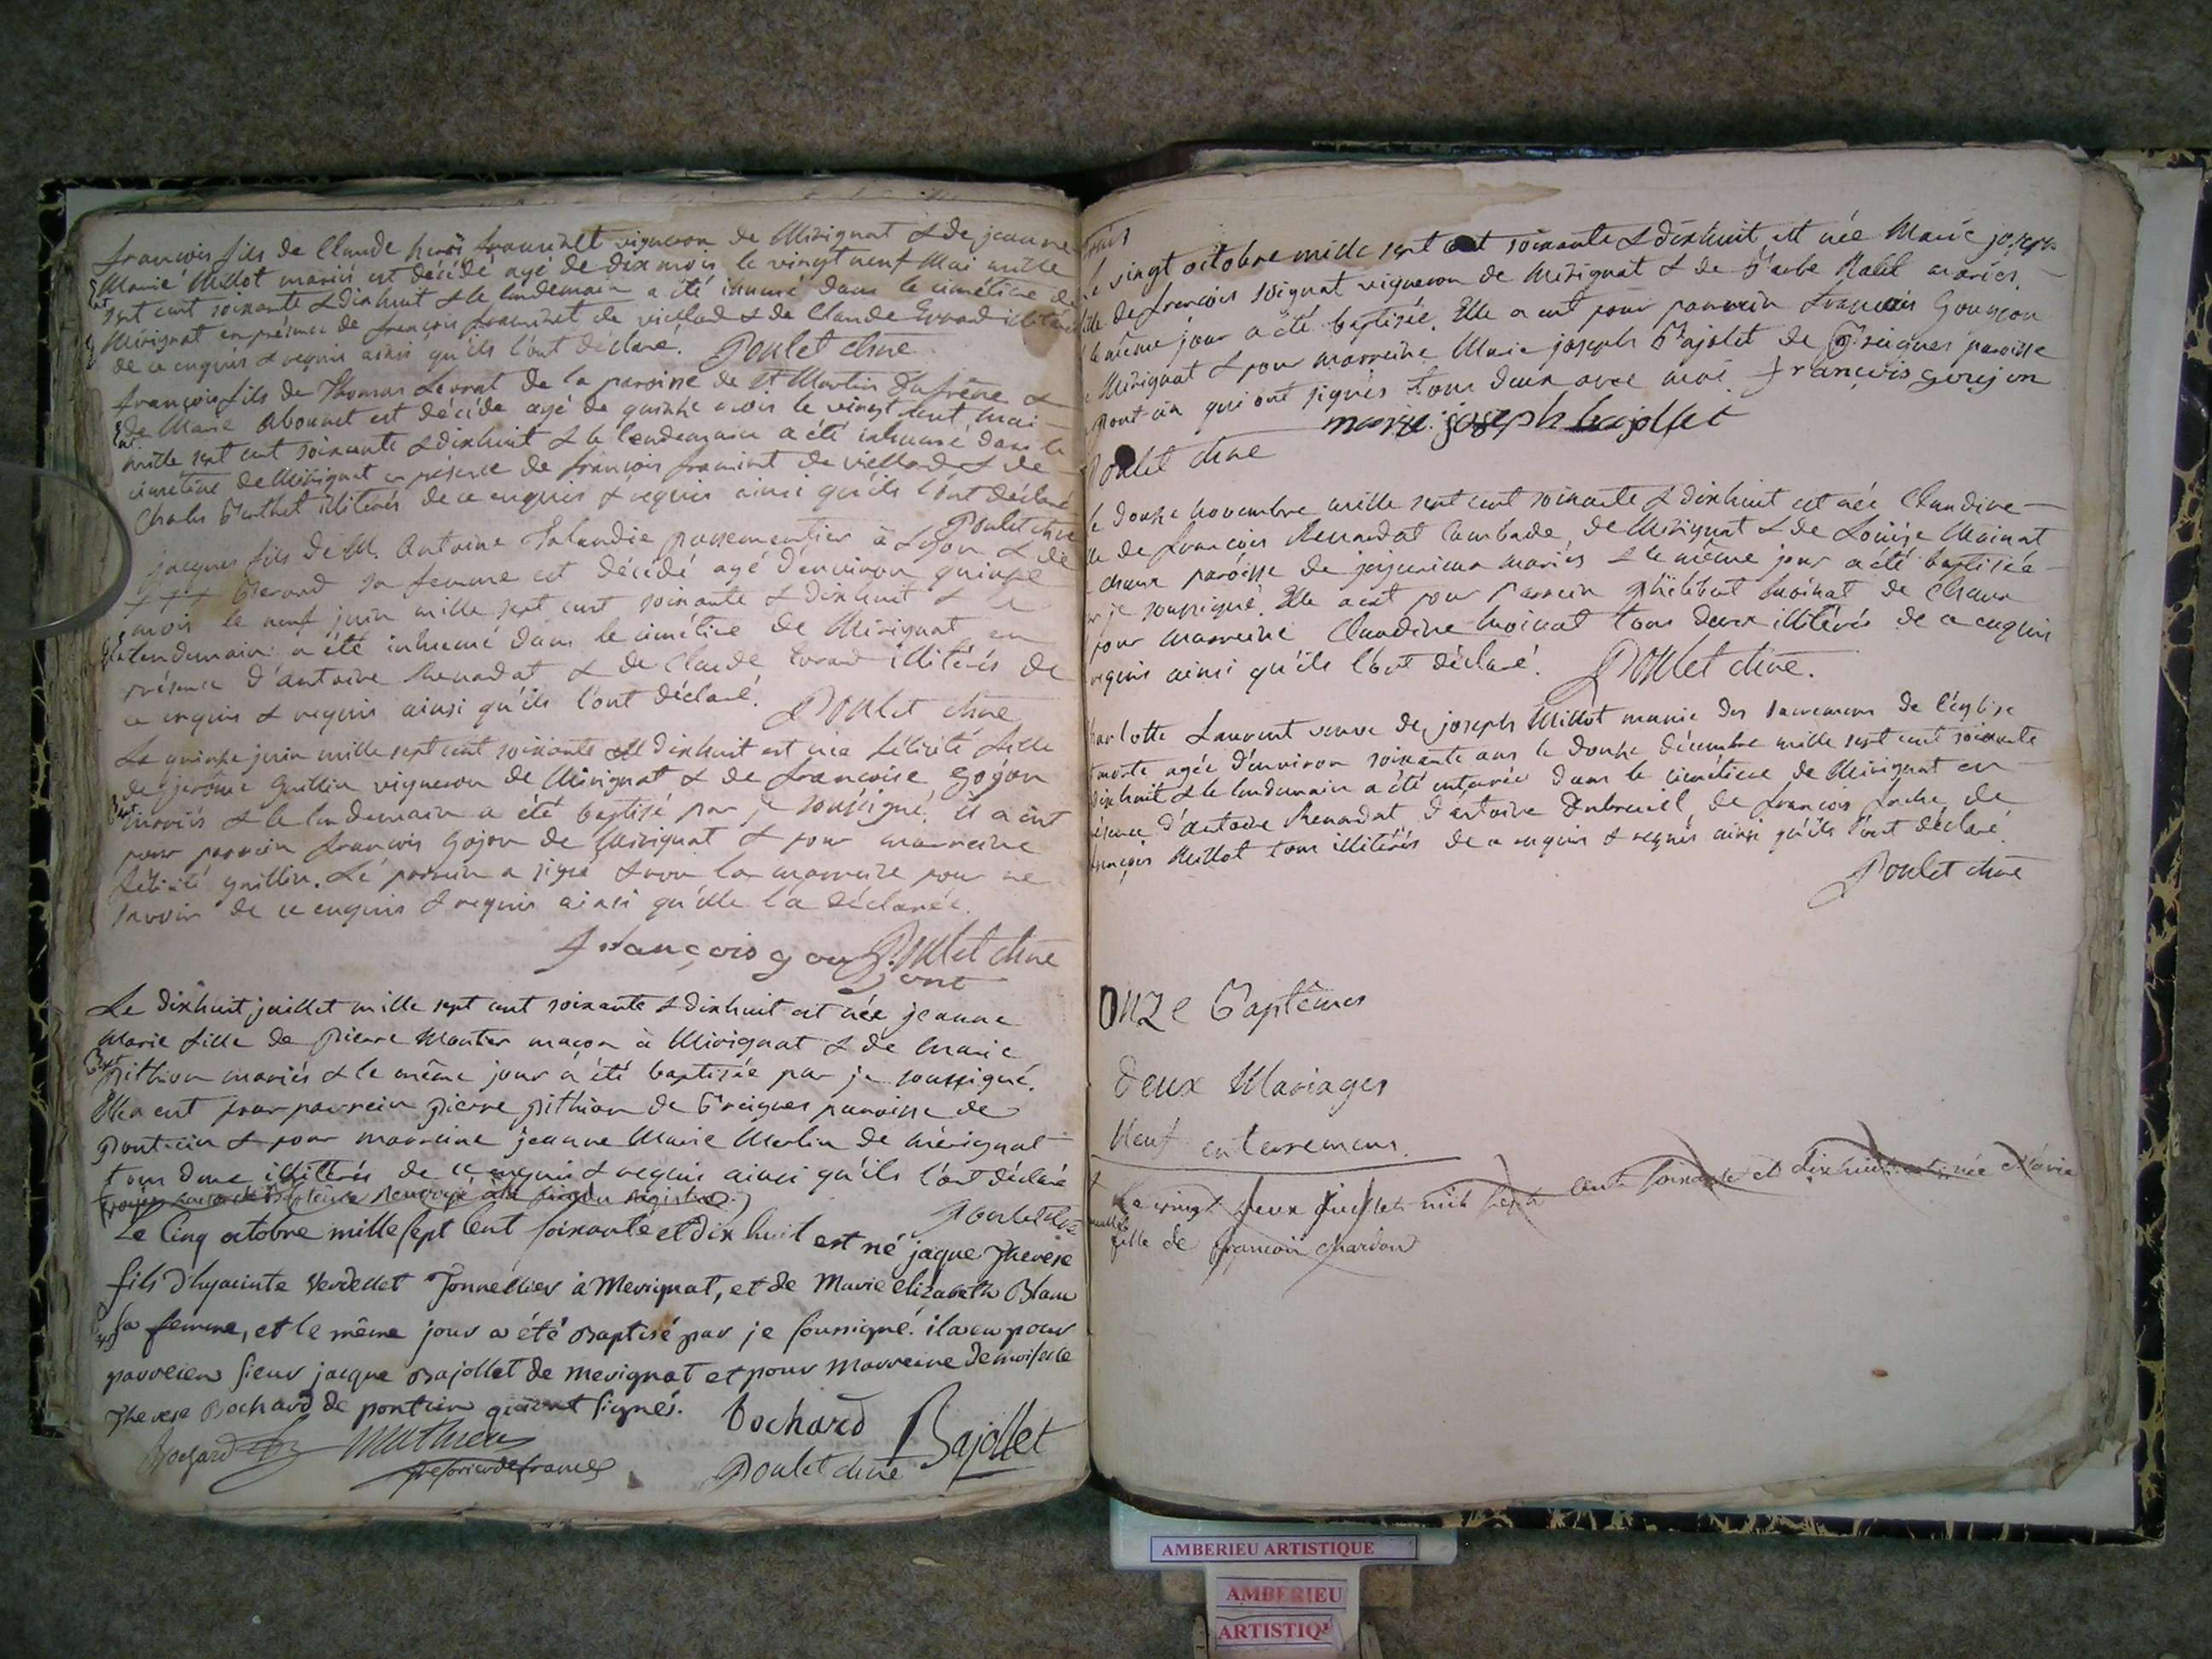 françois fils de Claude framinet vigneron de Mérignat & de jeanne
Marie Millot mariés est décédé agé de dix mois le vingt neuf Mai mille
sept cent soixante & dixhuit & le lendemain a été inhumé dans le cimétière de
Mérignat en présence de françois framinet de viellard & de Claude Evrard illitérés
de ce enquis & requis ainsi qu'ils l'ont déclaré. Poulet curé
françois fils de Thomas de la paroisse de St Martin du frêne &
de Marie Abonnet est décédé agé de quinze mois le vingt sept mai
mille sept cent soixante & dixhuit & le lendemain a été inhumé dans le
cimétière de Mérignat en présence de françois framinet de viellard & de
Charles Berthet illitérés de ce enquis & requis ainsi qu'ils l'ont déclaré
Poulet curé
jacques fils de M. Antoine Jalandie passementier à Lyon & de
+ + + Berand sa femme est décédé agé d'environ quinze
mois le neuf juin mille sept cent soixante & dixhuit & le
lendemain a été inhumé dans le cimétière de Mérignat en
présence d'antoine Renardat & de Claude Evrard illitérés de
ce enquis & requis ainsi qu'ils l'ont déclaré. Poulet curé
Le quinze juin mille sept cent soixante & dixhuit est née félicité fille
de jerôme Guillin vigneron de Mérignat & de françoise Gojon
mariés & le lendemain a été baptisé par je soussigné. il a eut
pour parrein françois Gojon de Mérignat & pour marreine
félicité guillin. Le parrein a signé & non la marreine pour ne
savoir de ce enquis & requis ainsi qu'elle l'a déclarée.
françois gou Poulet curé
jont
Le dixhuit juillet mille sept cent soixante & dixhuit est née jeanne
Marie fille de Pierre Montier maçon à Mérignat & de Marie
Bapt
Pithion mariés & le même jour a été baptisée par je soussigné.
Elle a eut pour parrein Pierre Pithion de Breignes paroisse de
Pont-ain & pour marreine jeanne Marie Merlin de mérignat
tous deux illitérés de ce enquis & requis ainsi qu'ils l'ont déclaré
Poulet curé
Le Cinq octobre mille sept Cent soixante et dix huit est né jaque Therese
fils d'hyacinte Verdellet Tonnellier à Merignat, et de Marie elizabeth Blanc
sa femme, et le même jour a été Baptisé par je soussigné. il a eu pour
parrein sieur jacque Bajollet de merignat et pour Marreine Demoiselle
Therese Bochard de pontein qui ont signés. bochard Bajollet
Bochard Mathieu
Poulet curé
le vingt octobre mille sept cent soixante & dixhuit est née Marie joseph
fille de françois Soignat vigneron de Mérignat & de Barbe Ralet mariés.
le même jour a été baptisée. Elle a eut pour parrein françois Goujon
de Mérignat & pour marreine Marie joseph Bajolet de Breignes paroisse
de Pont-ain qui ont signés tous deux avec moi françois goujon
marie joseph bajollet
Poulet curé
le douze novembre mille sept cent soixante & dixhuit est née Claudine
fille de françois Renardat Lambade de Mérignat & de Louise Moinat
de chaux paroisse de jujurieux mariés & le même jour a été baptisée
par je soussigné. Elle a eut pour Parrein philibert moinat de Chaux
& pour marreine Claudine Moinat tous deux illitérés de ce enquis
& requis ainsi qu'ils l'ont déclaré. Poulet curé.
Charlotte Laurent veuve de joseph Millot munie des sacremens de l'église
est morte agée d'environ soixante ans le douze décembre mille sept cent soixante
& dixhuit & le lendemain a été enterrée dans le cimétière de Mérignat en
présence d'antoine Renardat, d'antoine Dubreuil, de françois de
françois Millot tous illitérés de ce enquis & requis ainsi qu'ils l'ont déclaré
Poulet curé
Onze Baptêmes
Deux Mariages
Neuf enterremens.
Le vingt deux juillet mil sept cent soixante et dixhuit est née Marie
fille de françois chardon
AMBERIEU ARTISTIQUE
AMBERIEU
ARTISTIQ